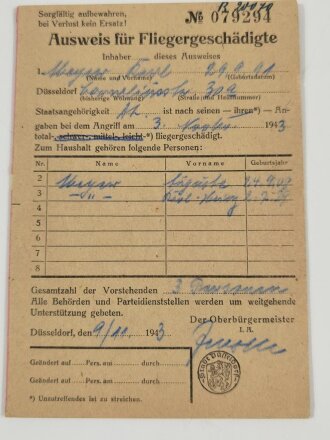 Sorgfältig aufbewahren,
bei Verlust kein Ersatz!
№ 079294
Ausweis für Fliegergeschädigte
Inhaber dieses Ausweises
1. Meyer Karl 29.9.01
(Name und Vorname) (Geburtsdatum)
Düsseldorf 30a
(bisherige Wohnung) (Straße und Hausnummer)
Staatsangehörigkeit ist nach seinen - ihren*) - An-
gaben bei dem Angriff am 3. 1943
total- schwer, mittel, leicht-*) fliegergeschädigt.
Zum Haushalt gehören folgende Personen:
Nr. Name Vorname Geburtsjahr
2 Meyer Auguste
3 -"-
4
5
6
7
8
Gesamtzahl der Vorstehenden 3 Personen
Alle Behörden und Parteidienststellen werden um weitgehende
Unterstützung gebeten.
Düsseldorf, den 9/11 1943
Der Oberbürgermeister
I. A.
Geändert auf Pers. am durch
Geändert auf Pers. am durch
*) Unzutreffendes ist zu streichen.